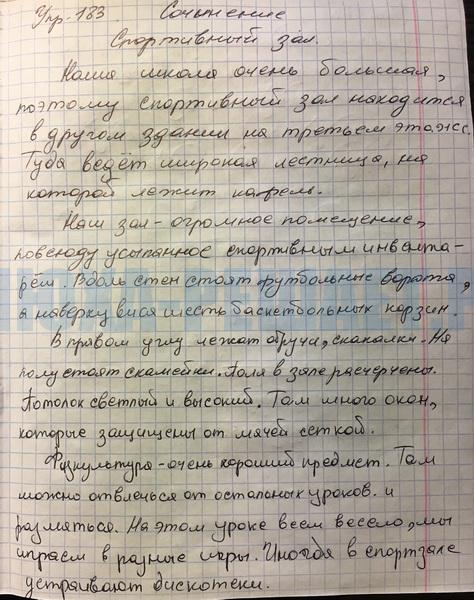 Упр. 183 Сочинение
Спортивный зал.
Наша школа очень большая,
поэтому спортивный зал находится
в другом здании на третьем этаже.
Туда ведёт широкая лестница, на
которой лежит кафель.
Наш зал - огромное помещение,
повсюду усыпанное спортивным инвента-
рём. Вдоль стен стоят футбольные ворота,
а наверху вися шесть баскетбольных корзин.
В правом углу лежат обручи, скакалки. На
полу стоят скамейки. Поля в зале расчерчены.
Потолок светлый и высокий. Там много окон,
которые защищены от мячей сеткой.
Физкультура - очень хороший предмет. Там
можно отвлечься от остальных уроков. и
размяться. На этом уроке всем весело, мы
играем в разные игры. Иногда в спортзале
устраивают дискотеки.